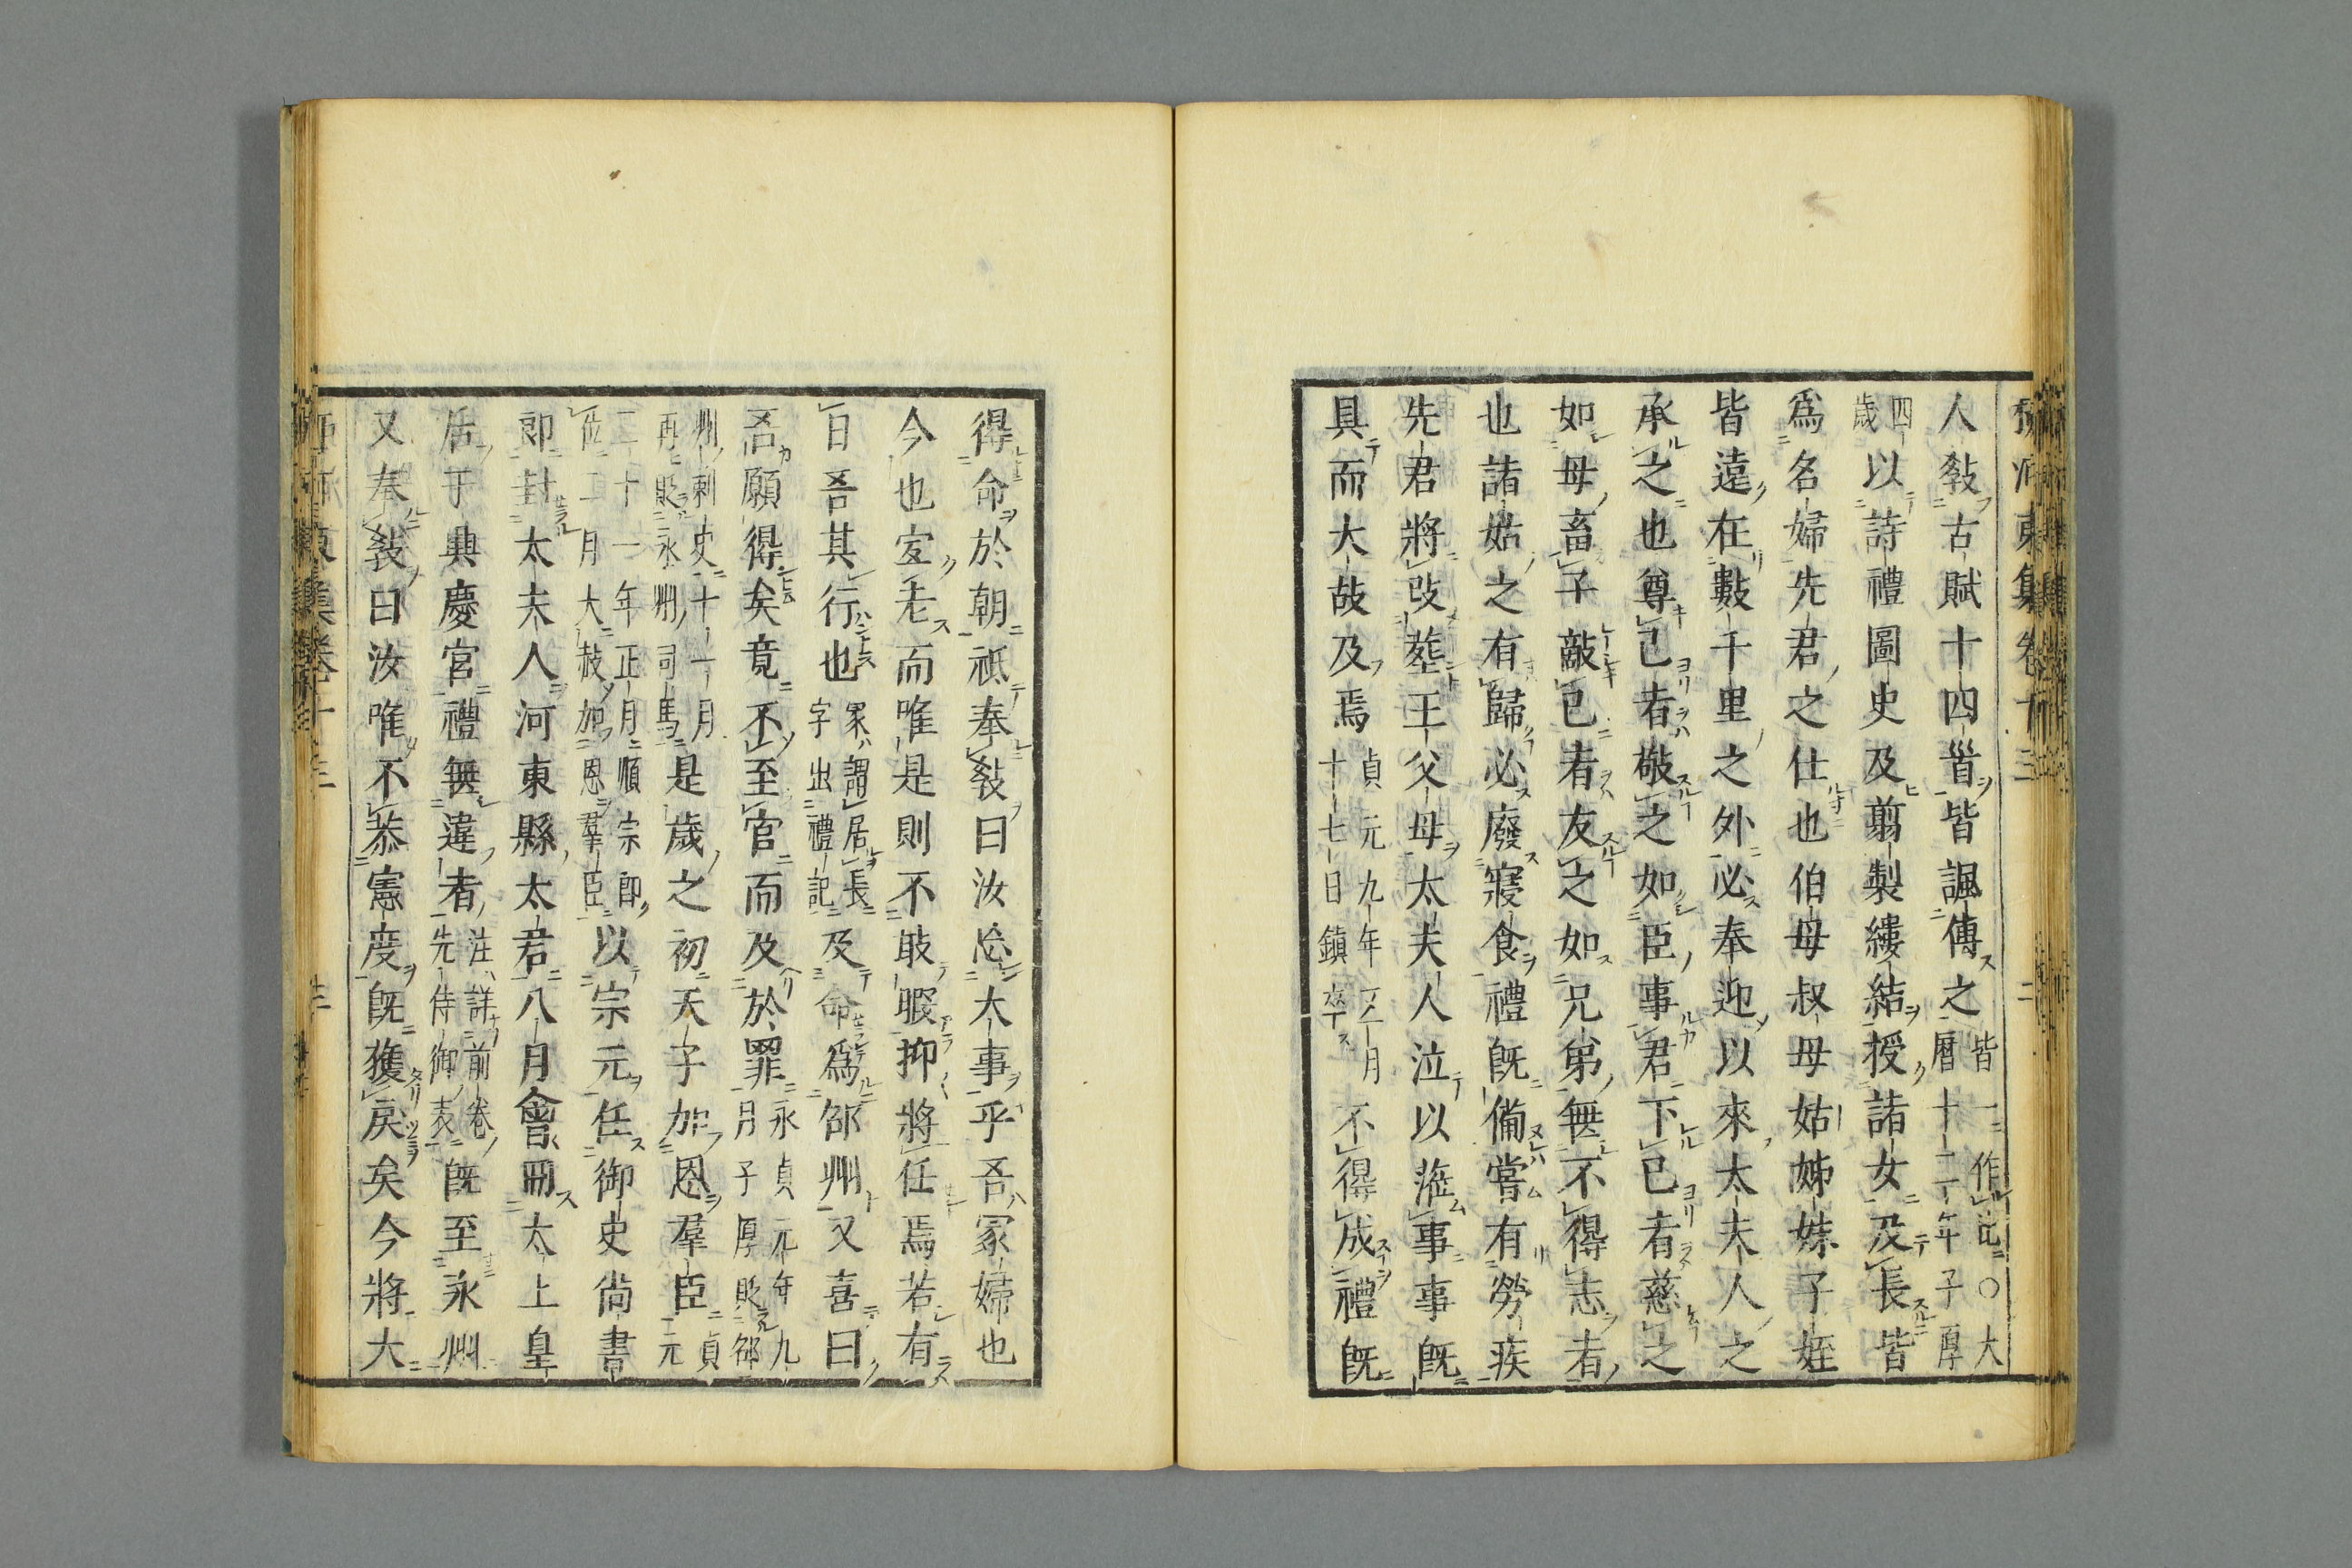 人敎古賦十四首皆諷傳之皆一作比○大曆十二年子厚
四歲以詩禮圖史及翦製縷結授諸女及長皆
爲名婦先君之仕也伯母叔母姑姊妹子姪
皆遠在數千里之外必奉迎以來太夫人之
承之也尊己者敬之如臣事君下己者慈之
如母畜子敵己者友之如兄弟無不得志者
也諸姑之有歸必廢寢食禮旣備嘗有勞疾
先君將改葬王父母太夫人泣以涖事事旣
具而大故及焉貞元九年五月十七日鎮卒不得成禮旣
得命於朝祗奉敎曰汝忘大事乎吾冢婦也
今也宜老而唯是則不敢暇抑將任焉若有
日吾其行也冢謂居長字出禮記及命爲邵州又喜曰
吾願得矣竟不至官而及於罪永貞元年九月子厚貶邵
州刺史十一月再貶永州司馬是歲之初天子加恩羣臣貞元
二十一年正月順宗卽位二月大赦加恩羣臣以宗元任御史尙書
郞封太夫人河東縣太君八月會冊太上皇
居于興慶宮禮無違者注詳前卷先侍御表旣至永州
又奉敎曰汝唯不恭憲度旣獲戾矣今將大